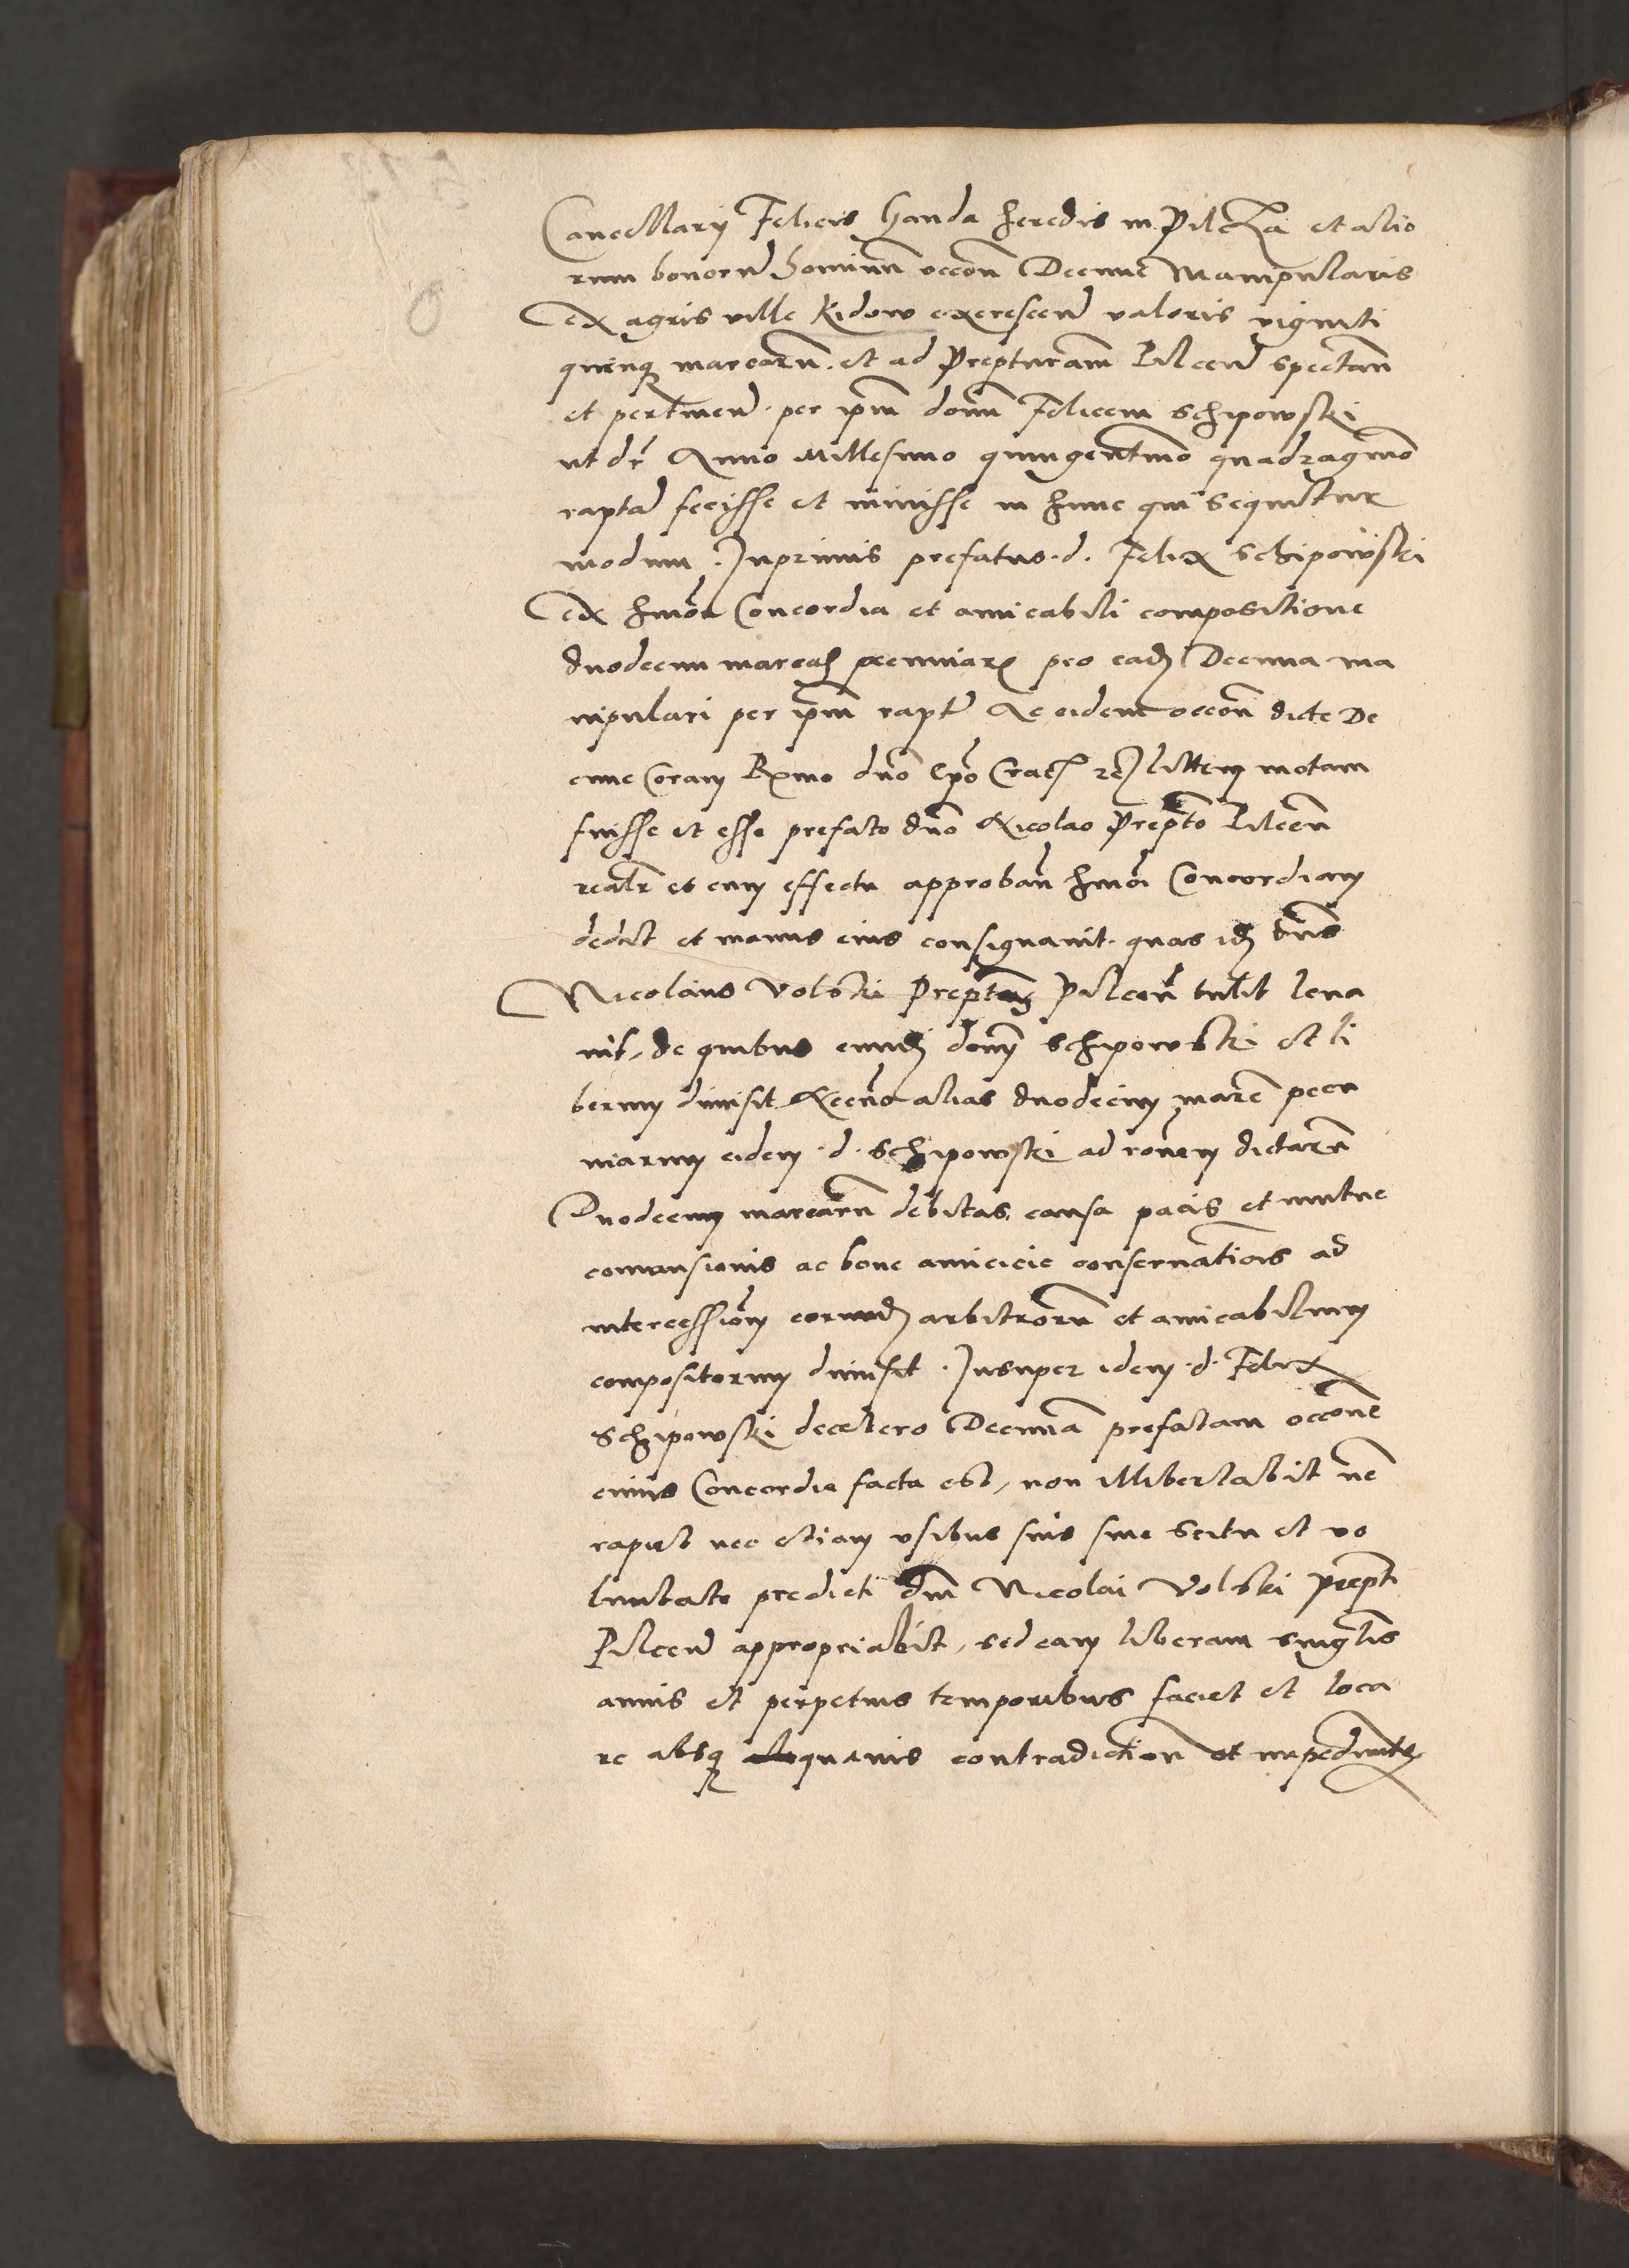 Cancellarij Felicis Handa heredis in Pilcza et alio
rum bonorum hominum occon Decime Manipularis
Ex agris ville Kidow excrescen valoris viginti
quinq marcarum et ad Prepturam Pilcen spectan
et pertinen per ipm donm Felicem Schipowski
ut dr Anno Millesimo quingentmo quadragmo
raptam fecisse et iniisse in hunc qui sequitur
modum . Inprimis prefatus d. Felix Schipowski
Ex hmoi Concordia et amicabili compositione
duodecim marcas pecuniar pro eadem Decima ma
nipulari per ipm rapt Ac eidem occon dicte De
cime Coram Rxmo dno Epo Crac rc littem motam
fuisse et esse prefato dno Nicolao Prepto Pilcen
realr et cum effectu approban hmoi Concordiam
dedit et manus eius consignavit . quas idem dns
Nicolaus Volski Preptus Pilcen tulit leva
vit, de quibus eundem donm Schipowski et li
berum dimisit Recno alias duodecim marc pecu
niarum eidem d. Schipowski ad ronem dictarum
Duodecim marcarum debitas, causa pacis et mutue
comansionis ac bone amicicie conservationis ad
intercessionem eorundem arbitrorum et amicabilium
compositorum dimisit . Insuper idem d. Felix
Schipowski decetero Decimam prefatam occone
cuius Concordia facta est, non illibertabit nec
rapiet nec etiam usibus suis sine scitu et vo
luntate predicti dni Nicolai Volski prepti
Pilcen appropriabit, sed eam liberam singulis
annis et perpetuis temporibus faciet et loca
re absq quavis contradiction et impedimento